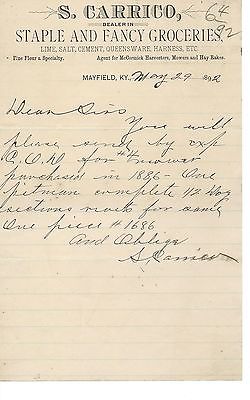 S. CARRICO,
DEALER IN
STAPLE AND FANCY GROCERIES
LIME, SALT, CEMENT, QUEENSWARE, HARNESS, ETC
Fine Flour a Specialty. Agent for McCormick Harvesters, Mowers and Hay Rakes.
MAYFIELD, KY. May 29
Dear Sirs
You will
please send by exp
C.O.D. for #4 mower
purchased in 1886 - One
pitman complete 12
sections rivets for same
One piece # 1686
And Oblige
S. Carrico